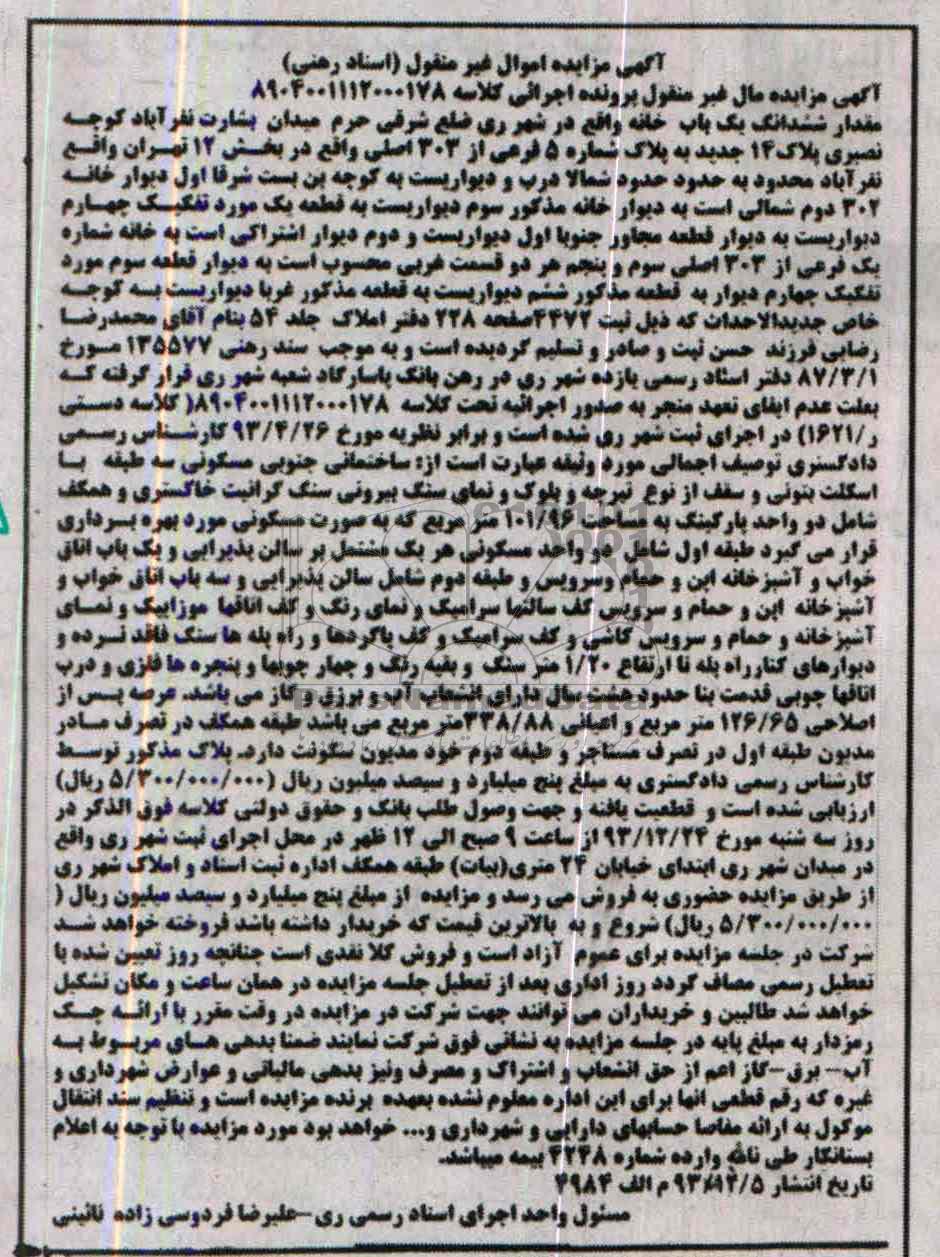 آگهی مزایده اموال غیر منقول (اسناد رهنی)
آگهی مزایده مال غیر منقول پرونده اجرائی کلاسه ۸۹۰۴۰۰۱۱۱۲۰۰۰۱۷۸
مقدار ششدانگ یک باب خانه واقع در شهر ری ضلع شرقی حرم میدان بشارت نفرآباد کوچه
نصیری پلاک۱۴ جدید به پلاک شماره ۵ فرعی از ۳۰۳ اصلی واقع در بخش ۱۲ تهران واقع
نفرآباد محدود به حدود حدود شمالا درب و دیواریست به کوچه بن بست شرقا اول دیوار خانه
۳۰۲ دوم شمالی است به دیوار خانه مذکور سوم دیواریست به قطعه یک مورد تفکیک چهارم
دیواریست به دیوار قطعه مجاور جنوبا اول دیواریست و دوم دیوار اشتراکی است به خانه شماره
یک فرعی از ۳۰۳ اصلی سوم و پنجم هر دو قسمت غربی محسوب است به دیوار قطعه سوم مورد
تفکیک چهارم دیوار به قطعه مذکور ششم دیواریست به قطعه مذکور غربا دیواریست به کوچه
خاص جدیدالاحداث که ذیل ثبت ۴۴۷۲صفحه ۲۲۸ دفتر املاک جلد ۵۴ بنام آقای محمدرضا
رضایی فرزند حسن ثبت و صادر و تسلیم گردیده است و به موجب سند رهنی ۱۳۵۵۷۷ مورخ
۸۷/۳/۱ دفتر اسناد رسمی یازده شهر ری در رهن بانک پاسارگاد شعبه شهر ری قرار گرفته که
بعلت عدم ایفای تعهد منجر به صدور اجرائیه تحت کلاسه ۸۹۰۴۰۰۱۱۱۲۰۰۰۱۷۸( کلاسه دستی
ر/۱۶۲۱) در اجرای ثبت شهر ری شده است و برابر نظریه مورخ ۹۳/۴/۲۶ کارشناس رسمی
دادگستری توصیف اجمالی مورد وثیقه عبارت است از: ساختمانی جنوبی مسکونی سه طبقه با
اسکلت بتونی و سقف از نوع تیرچه و بلوک و نمای سنگ بیرونی سنگ گرانیت خاکستری و همکف
شامل دو واحد پارکینگ به مساحت ۱۰۱/۹۶ متر مربع که به صورت مسکونی مورد بهره برداری
قرار می گیرد طبقه اول شامل دو واحد مسکونی هر یک مشتمل بر سالن پذیرایی و یک باب اتاق
خواب و آشپزخانه اپن و حمام وسرویس و طبقه دوم شامل سالن پذیرایی و سه باب اتاق خواب و
آشپزخانه اپن و حمام و سرویس کف سالنها سرامیک و نمای رنگ و کف اتاقها موزاییک و نمای
آشپزخانه و حمام و سرویس کاشی و کف سرامیک و کف پاگردها و راه پله ها سنگ فاقد نرده و
دیوارهای کنارراه پله تا ارتفاع ۱/۲۰ متر سنگ و بقیه رنگ و چهار چوبها و پنجره ها فلزی و درب
اتاقها چوبی قدمت بنا حدود هشت سال دارای انشعاب آب و برق و گاز می باشد. عرصه پس از
اصلاحی ۱۲۶/۶۵ متر مربع و اعیانی ۳۳۸/۸۸متر مربع می باشد طبقه همکف در تصرف مادر
مدیون طبقه اول در تصرف مستاجر و طبقه دوم خود مدیون سکونت دارد. پلاک مذکور توسط
کارشناس رسمی دادگستری به مبلغ پنج میلیارد و سیصد میلیون ریال (۵/۳۰۰/۰۰۰/۰۰۰ ریال)
ارزیابی شده است و قطعیت یافته و جهت وصول طلب بانک و حقوق دولتی کلاسه فوق الذکر در
روز سه شنبه مورخ ۹۳/۱۲/۲۴ از ساعت ۹ صبح الی ۱۲ ظهر در محل اجرای ثبت شهر ری واقع
در میدان شهر ری ابتدای خیابان ۲۴ متری(بیات) طبقه همکف اداره ثبت اسناد و املاک شهر ری
از طریق مزایده حضوری به فروش می رسد و مزایده از مبلغ پنج میلیارد و سیصد میلیون ریال (
۵/۳۰۰/۰۰۰/۰۰۰ ریال) شروع و به بالاترین قیمت که خریدار داشته باشد فروخته خواهد شد
شرکت در جلسه مزایده برای عموم آزاد است و فروش کلا نقدی است چنانچه روز تعیین شده با
تعطیل رسمی مصاف گردد روز اداری بعد از تعطیل جلسه مزایده در همان ساعت و مکان تشکیل
خواهد شد طالبین و خریداران می توانند جهت شرکت در مزایده در وقت مقرر با ارائه چک
رمزدار به مبلغ پایه در جلسه مزایده به نشانی فوق شرکت نمایند ضمنا بدهی های مربوط به
آب- برق-گاز اعم از حق انشعاب و اشتراک و مصرف ونیز بدهی مالیاتی و عوارض شهرداری و
غیره که رقم قطعی آنها برای این اداره معلوم نشده بعهده برنده مزایده است و تنظیم سند انتقال
موکول به ارائه مفاصا حسابهای دارایی و شهرداری و... خواهد بود مورد مزایده با توجه به اعلام
بستانکار طی نامه وارده شماره ۴۲۴۸ بیمه میباشد.
تاریخ انتشار ۹۳/۱۲/۵ م الف ۴۹۸۴
مسئول واحد اجرای اسناد رسمی ری-علیرضا فردوسی زاده نائینی
ParsNamadData